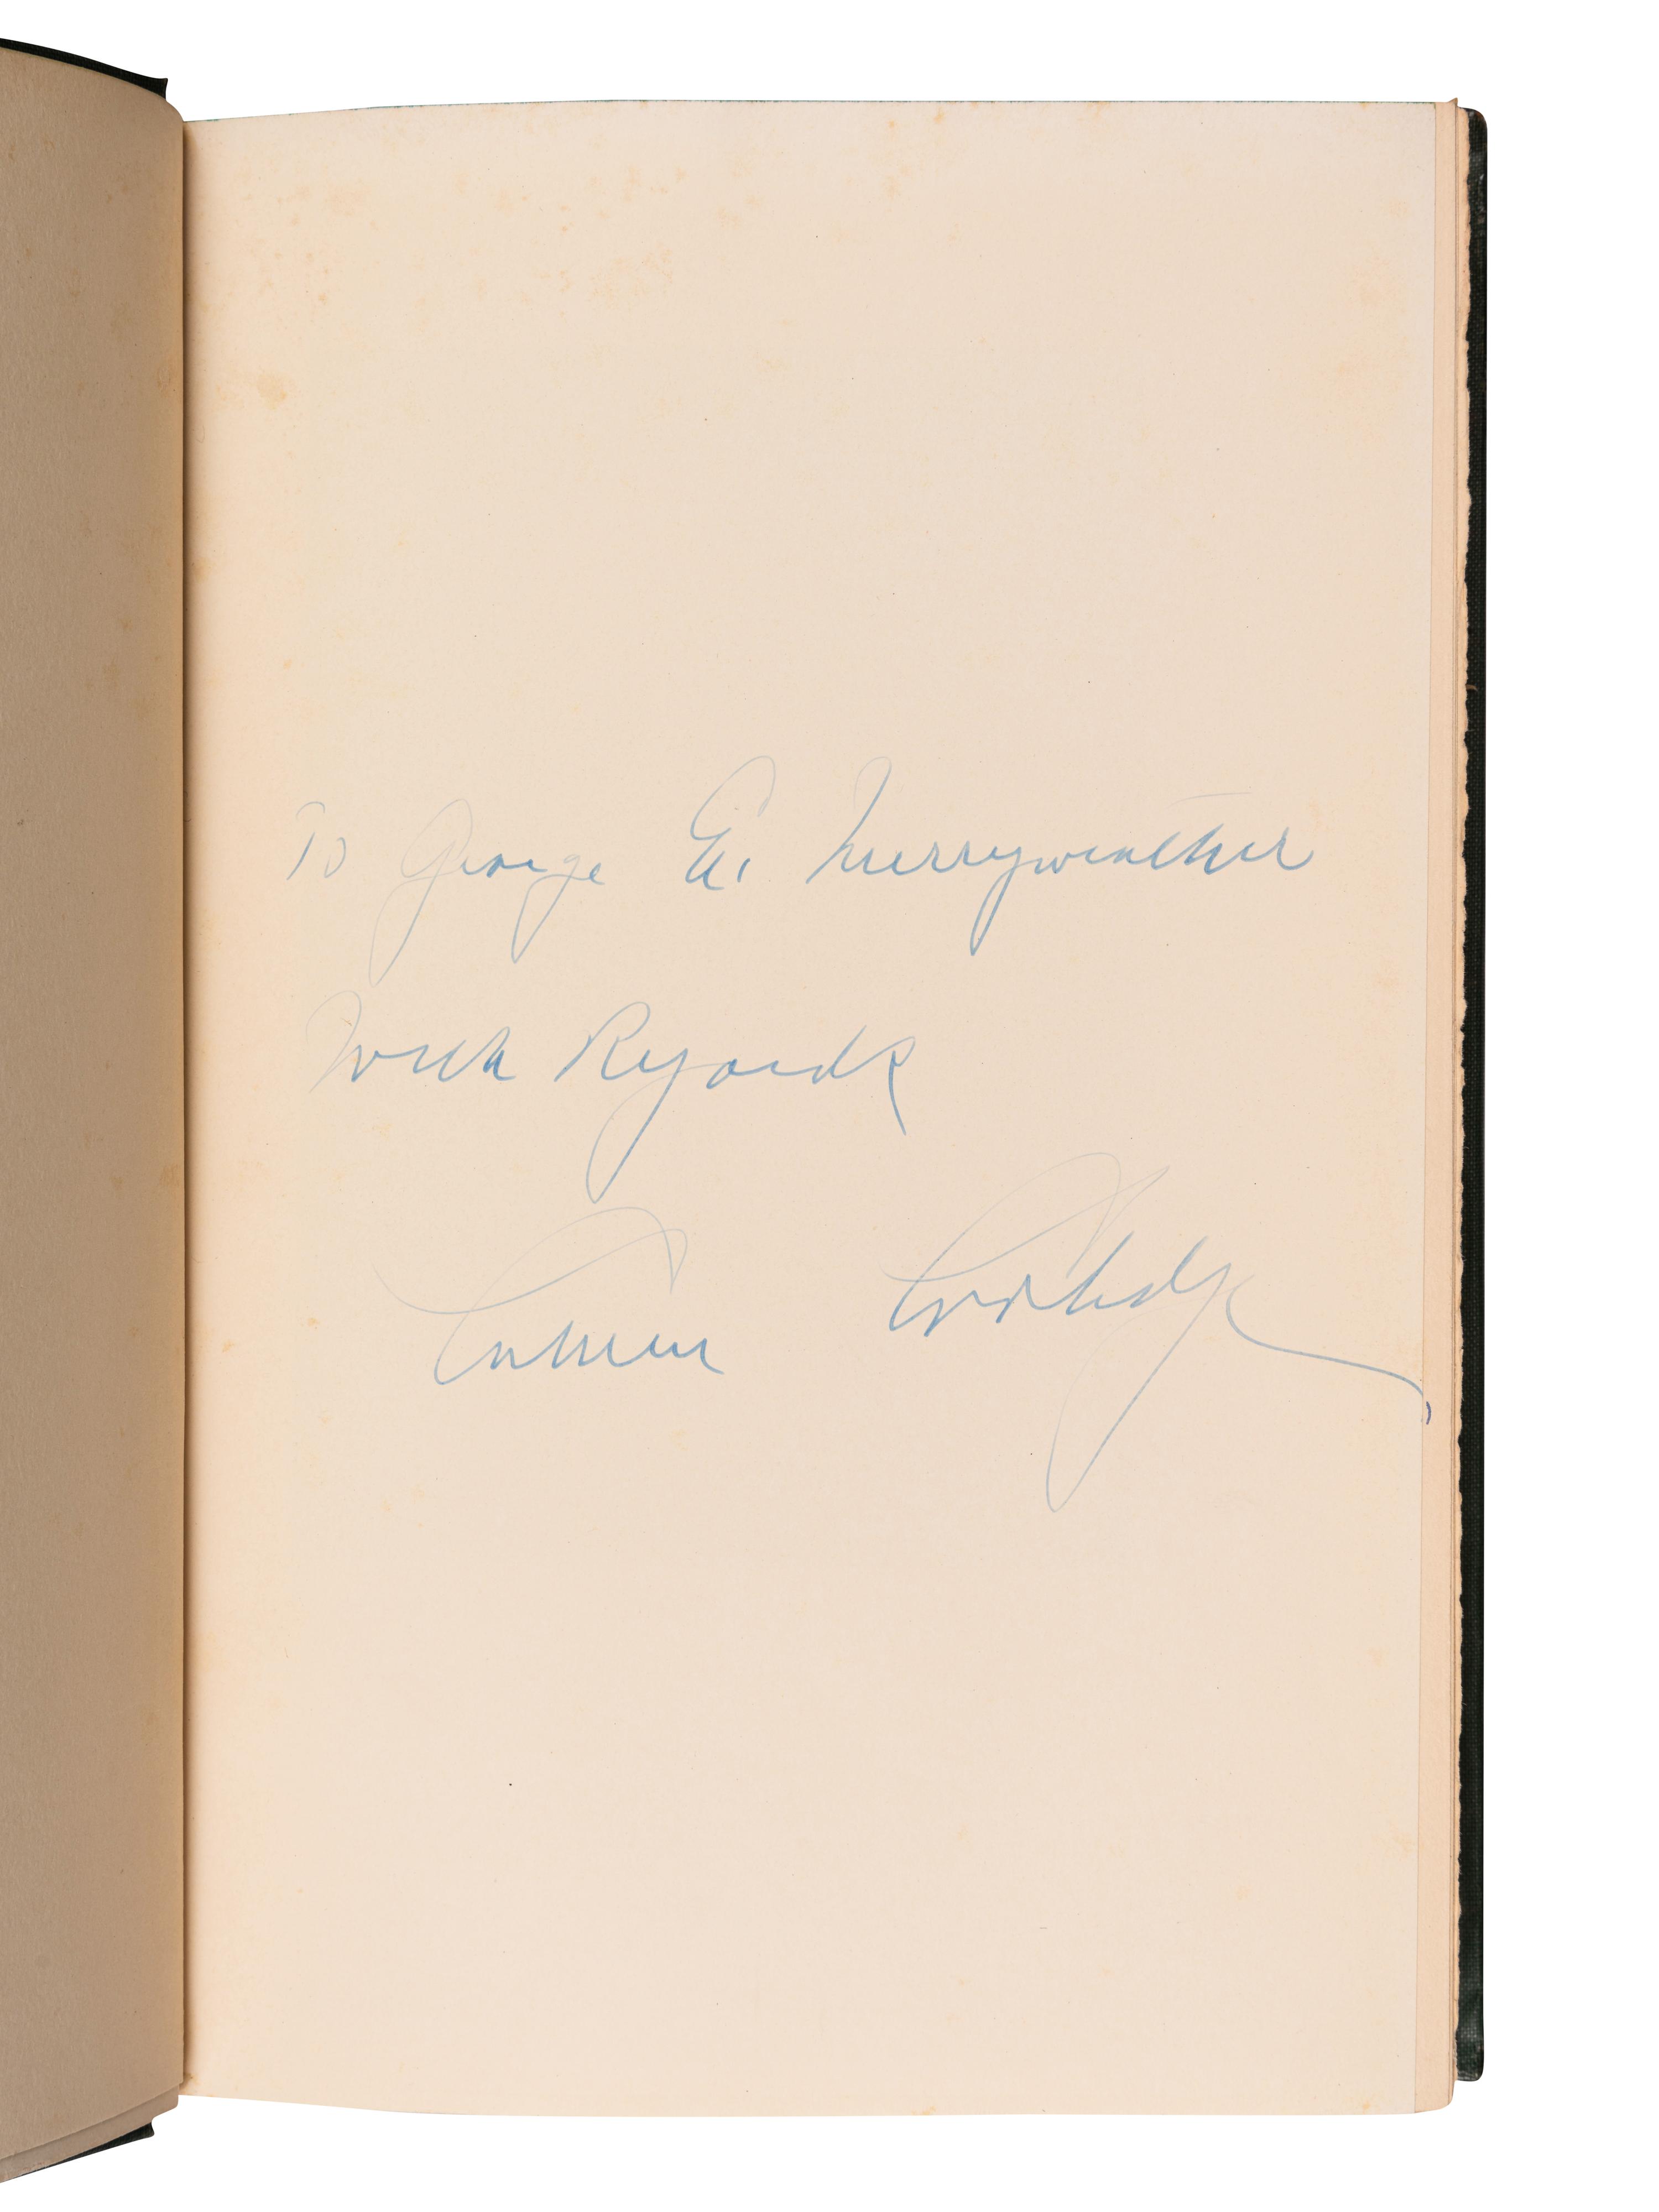 To George E. Merryweather
With Regards
Calvin Coolidge